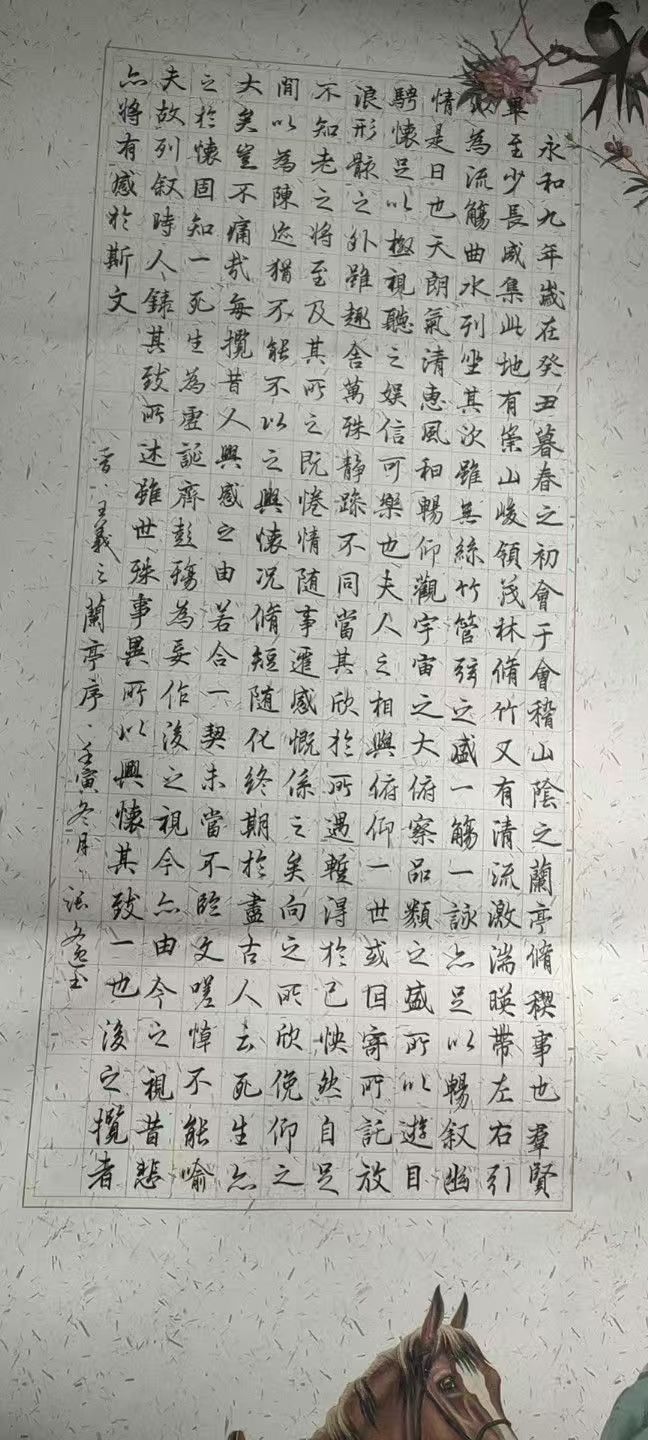 永和九年歲在癸丑暮春之初會于會稽山陰之蘭亭脩稧事也羣賢
畢至少長咸集此地有崇山峻領茂林脩竹又有清流激湍暎帶左右引
為流觴曲水列坐其次雖無絲竹管弦之盛一觴一詠亦足以暢叙幽
情是日也天朗氣清惠風和暢仰觀宇宙之大俯察品類之盛所以遊目
騁懷足以極視聽之娱信可樂也夫人之相與俯仰一世或因寄所託放
浪形骸之外雖趣舍萬殊靜躁不同當其欣於所遇蹔得於己怏然自足
不知老之將至及其所之既惓情随事遷感慨係之矣向之所欣俛仰之
間以為陳迹猶不能不以之興懷况脩短随化終期於盡古人云死生亦
大矣豈不痛哉每攬昔人興感之由若合一契未當不臨文嗟悼不能喻
之於懷固知一死生為虛誕齊彭殤為妄作後之視今亦由今之視昔悲
夫故列叙時人錄其致所述雖世殊事異所以興懷其致一也後之攬者
亦將有感於斯文
晋王羲之蘭亭序壬寅冬月